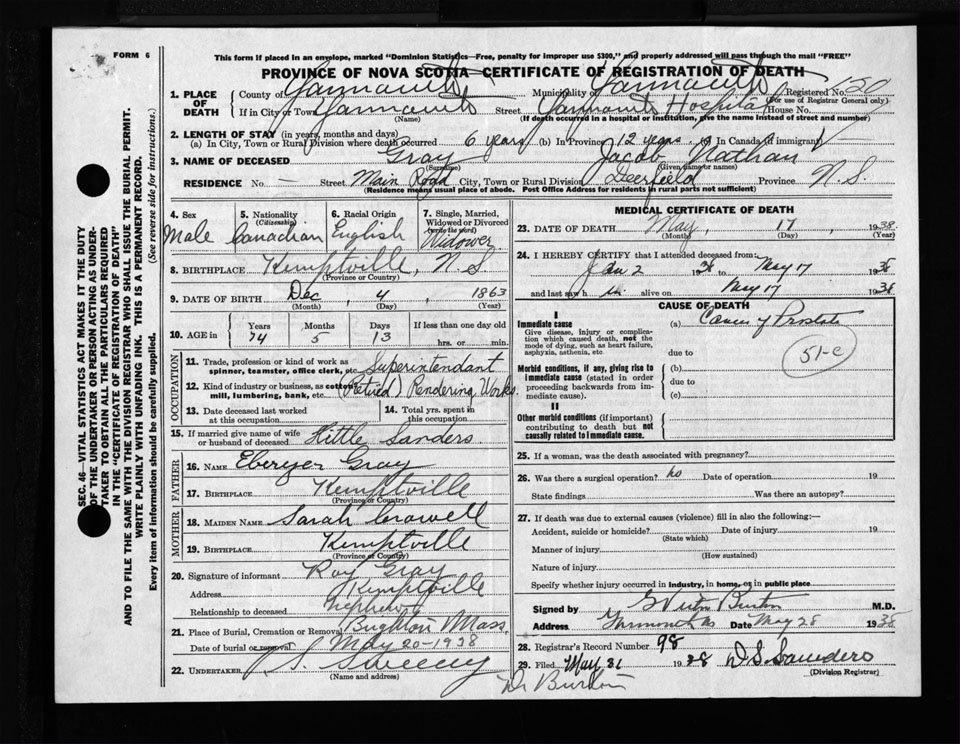 FORM 6
This form if placed in an envelope, marked "Dominion Statistics—Free, penalty for improper use $300," and properly addressed will pass through the mail "FREE"
PROVINCE OF NOVA SCOTIA—CERTIFICATE OF REGISTRATION OF DEATH
1. PLACE OF DEATH
County of Yarmouth Municipality of Yarmouth Registered No. 150
(For use of Registrar General only)
If in City or Town Yarmouth Street Yarmouth Hospital House No.
(Name) (If death occurred in a hospital or institution, give the name instead of street and number)
2. LENGTH OF STAY (in years, months and days)
(a) In City, Town or Rural Division where death occurred 6 years (b) In Province 12 years (c) In Canada (if immigrant)
3. NAME OF DECEASED Gray Jacob Nathan
(Surname) (Given name or names)
RESIDENCE No. — Street Main Road City, Town or Rural Division Deerfield Province N.S.
(Residence means usual place of abode. Post Office Address for residents in rural parts not sufficient)
4. Sex Male
5. Nationality (Citizenship) Canadian
6. Racial Origin English
7. Single, Married, Widowed or Divorced (write the word) Widower
8. BIRTHPLACE Kemptville, N.S
(Province or Country)
9. DATE OF BIRTH Dec, 4, 1863
(Month) (Day) (Year)
10. AGE in Years 74 Months 5 Days 13 If less than one day old hrs. or min.
OCCUPATION
11. Trade, profession or kind of work as spinner, teamster, office clerk, etc. Superintendant
12. Kind of industry or business, as cotton mill, lumbering, bank, etc. (Retired) Rendering Works.
13. Date deceased last worked at this occupation
14. Total yrs. spent in this occupation
15. If married give name of wife or husband of deceased Hittle Sanders
FATHER
16. NAME Gray
17. BIRTHPLACE Kemptville
(Province or Country)
MOTHER
18. MAIDEN NAME Sarah Crowell
19. BIRTHPLACE Kemptville
(Province or Country)
20. Signature of informant Roy Gray
Address Kemptville
Relationship to deceased Nephew
21. Place of Burial, Cremation or Removal Brighton Mass,
Date of burial or removal May 20-1938
22. UNDERTAKER Sweeny
(Name and address)
Dr Burton
MEDICAL CERTIFICATE OF DEATH
23. DATE OF DEATH May, 17, 1938
(Month) (Day) (Year)
24. I HEREBY CERTIFY that I attended deceased from:
Jan 2 1938 to May 17 1938
and last saw h im alive on May 17 1938
CAUSE OF DEATH
I
Immediate cause
Give disease, injury or complication which caused death, not the mode of dying, such as heart failure, asphyxia, asthenia, etc
(a) Cancer of Prostate
due to
51-c
Morbid conditions, if any, giving rise to immediate cause (stated in order proceeding backwards from immediate cause).
(b)
due to
(c)
II
Other morbid conditions (if important) contributing to death but not causally related to immediate cause.
25. If a woman, was the death associated with pregnancy?
26. Was there a surgical operation? no Date of operation 19
State findings Was there an autopsy?
27. If death was due to external causes (violence) fill in also the following:—
Accident, suicide or homicide? Date of injury 19
(State which)
Manner of injury
(How sustained)
Nature of injury
Specify whether injury occurred in industry, in home, or in public place
Signed by Burton M.D.
Address Yarmouth NS Date May 28 1938
28. Registrar's Record Number 98
29. Filed May 31 1938 D.S. Saunders
(Division Registrar)
SEC. 46—VITAL STATISTICS ACT MAKES IT THE DUTY
OF THE UNDERTAKER OR PERSON ACTING AS UNDER-
TAKER TO OBTAIN ALL THE PARTICULARS REQUIRED
IN THE "CERTIFICATE OF REGISTRATION OF DEATH"
AND TO FILE THE SAME WITH THE DIVISION REGISTRAR WHO SHALL ISSUE THE BURIAL PERMIT.
WRITE PLAINLY WITH UNFADING INK. THIS IS A PERMANENT RECORD.
Every item of information should be carefully supplied. (See reverse side for instructions.)